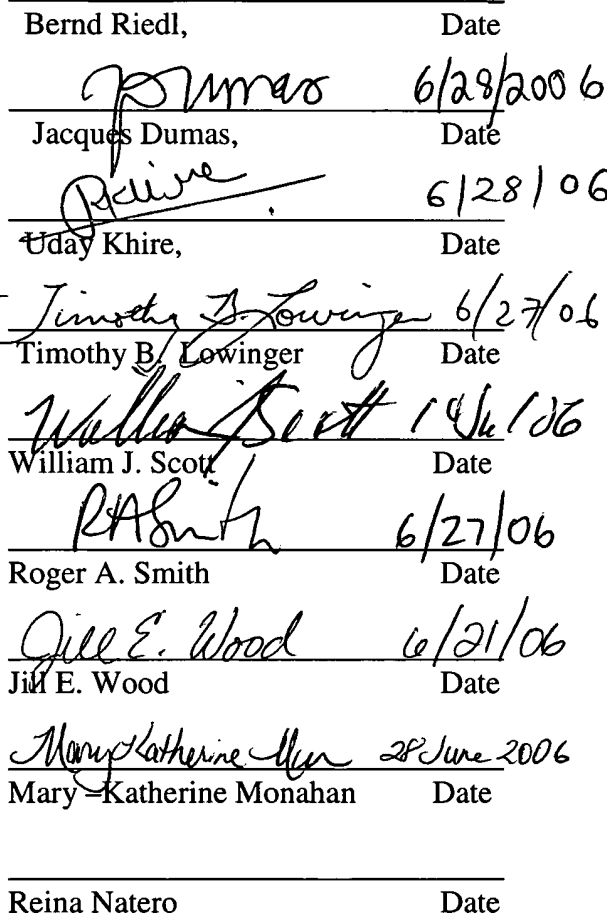 Bernd Riedl, Date
JDumas 6/28/2006
Jacques Dumas, Date
6/28/06
Uday Khire, Date
Timothy B. Lowinger 6/27/06
Timothy B. Lowinger Date
William J Scott
William J. Scott Date
RASmith 6/27/06
Roger A. Smith Date
Jill E. Wood 6/21/06
Jill E. Wood Date
Mary-Katherine 28 June 2006
Mary –Katherine Monahan Date
Reina Natero Date